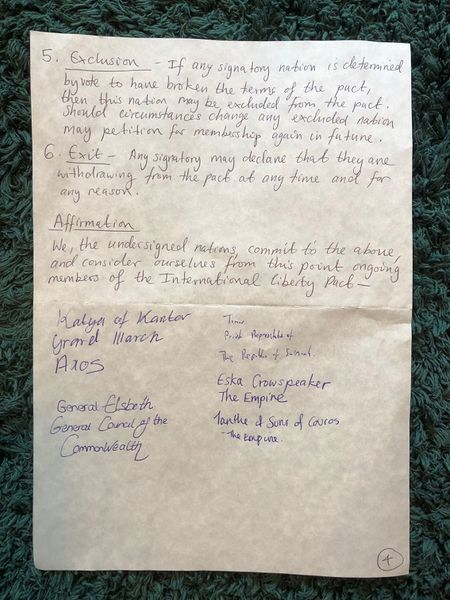 5. Exclusion - If any signatory nation is determined
by vote to have broken the terms of the pact,
then this nation may be excluded from the pact.
Should circumstances change any excluded nation
may petition for membership again in future.
6. Exit - Any signatory may declare that they are
withdrawing from the pact at any time and for
any reason.
Affirmation
We, the undersigned nations, commit to the above,
and consider ourselves from this point ongoing
members of the International Liberty Pact -
Katya of Kantor
Grand March
Axos
General Elsbeth
General Council of the
Commonwealth
The Republic of
Eska Crowspeaker
The Empire
Ianthe of Sons of
The Empire.
4